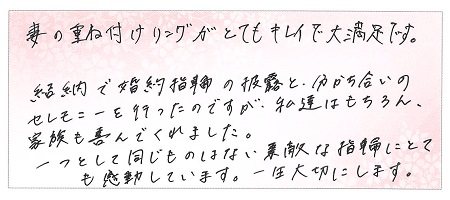 妻の重ね付けリングがとてもキレイで大満足です。
結納で婚約指輪の披露と、分かち合いの
セレモニーを行ったのですが、私達はもちろん、
家族も喜んでくれました。
一つとして同じものはない素敵な指輪にとて
も感動しています。一生大切にします。